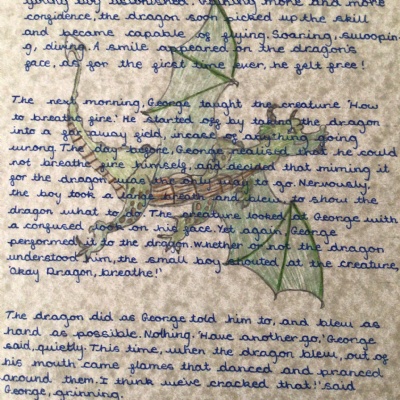 young boy astonished. Having more and more
confidence, the dragon soon picked up the skill
and became capable of flying. Soaring, swoopin-
g, diving. A smile appeared on the dragon's
face, as for the first time ever, he felt free!
The next morning, George taught the creature 'How
to breathe fire.' He started off by taking the dragon
into a far away field, incase of anything going
wrong. The day before, George realised that he could
not breathe fire himself, and decided that miming it
for the dragon was the only way to go. Nervously,
the boy took a large breath and blew, to show the
dragon what to do. The creature looked at George with
a confused look on his face. Yet again, George
performed it to the dragon. Whether or not the dragon
understood him, the small boy shouted at the creature,
'Okay Dragon, breathe!'
The dragon did as George told him to, and blew as
hard as possible. Nothing. 'Have another go,' George
said, quietly. This time, when the dragon blew, out of
his mouth came flames that danced and pranced
around them. 'I think we've cracked that!' said
George, grinning.